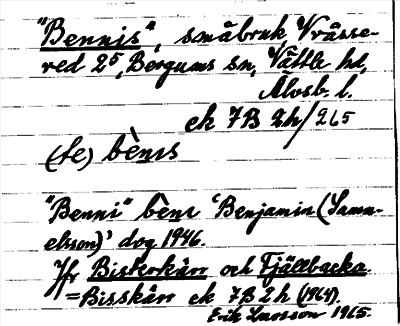 "Bennis", småbruk Vråsse-
red 2⁵, Bergums sn, Vättle hd,
Älvsb. l.
ek 7B 2h/265
(te) bènıs
"Benni" bènı 'Benjamin (Samu-
elsson)' dog 1946.
Jfr Biskerkärr och Fjällbacka.
=Bisskärr ek 7B 2h (1964).
Erik Larsson 1965.